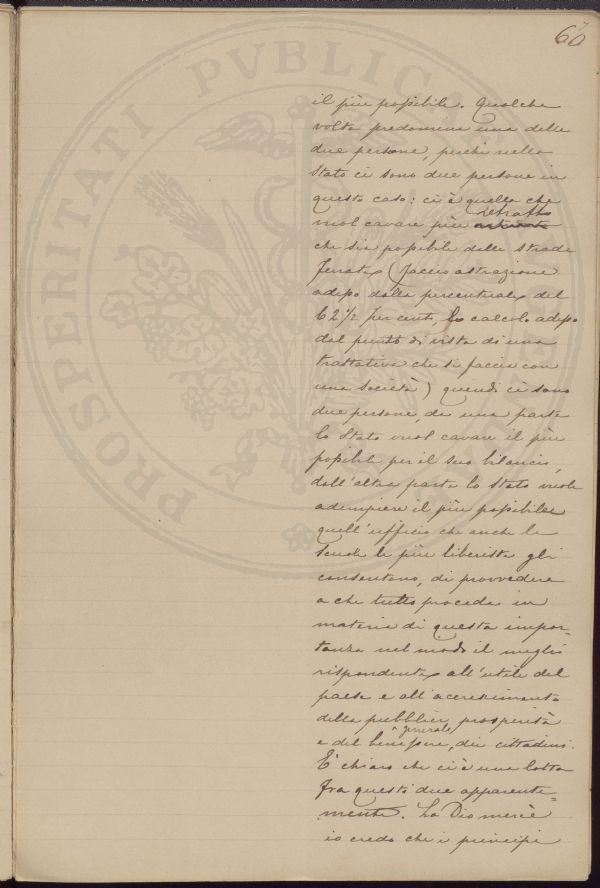 60
il più possibile. Qualche
volta predomina una delle
due persone, perchè nello
Stato ci sono due persone in
questo caso: ci è quella che
vuol cavare più ritratto
che sia possibile delle strade
ferrate (faccio astrazione
adesso dalla percentuale del
62 1/2 per cento, lo calcolo adesso
dal punto di vista di una
trattativa che si faccia con
una Società) quindi ci sono
due persone, da una parte
lo Stato vuol cavare il più
possibile per il suo bilancio,
dall'altra parte lo Stato vuole
adempiere il più possibile
quell'ufficio che anche le
scuole le più liberiste gli
consentono, di provvedere
a che tutto proceda in
materia di questa impor-
tanza nel modo il meglio
rispondente all'utile del
paese e all'accrescimento
della pubblica prosperità
e del benessere generale, dei cittadini.
È chiaro che ci è una lotta
fra questi due apparente-
mente. La Dio mercè
io credo che i principi
PROSPERITATI PVBLICAE